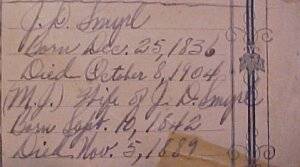 J. D. Smyrl
Born Dec. 25, 1836
Died October 8, 1904
(M. J.) Wife of J. D. Smyrl
Born Sept. 10, 1842
Died Nov. 5, 1889